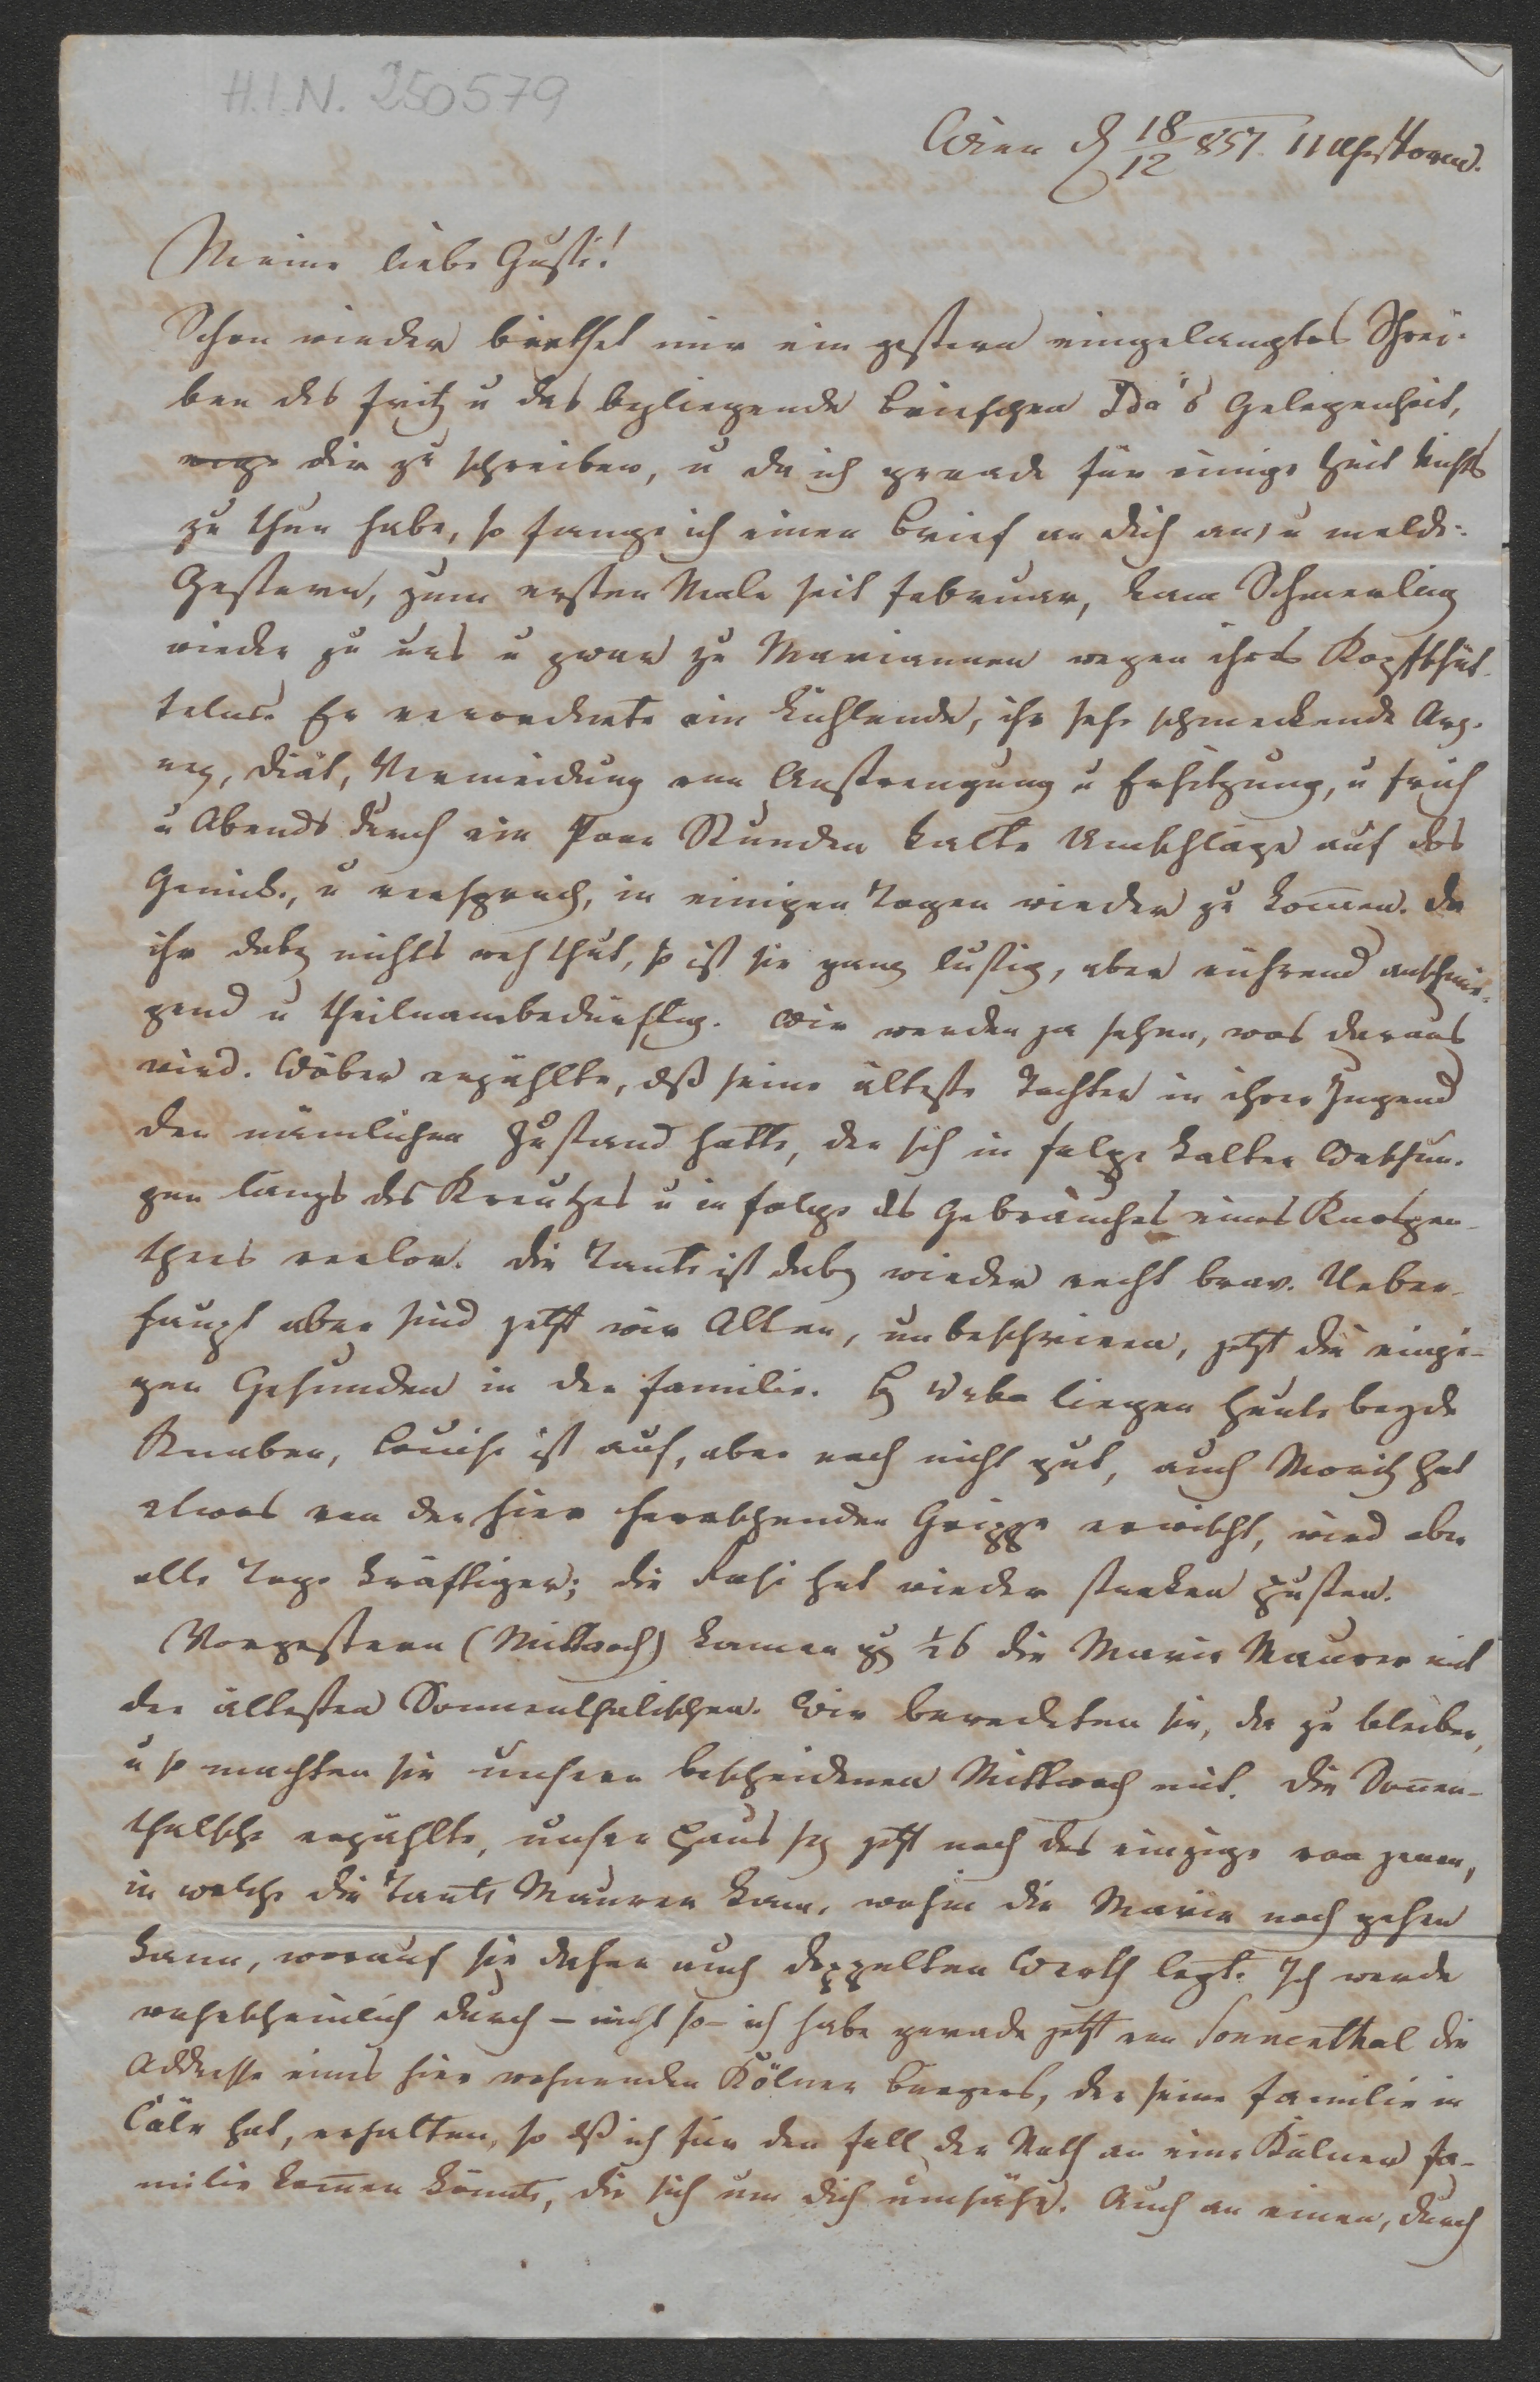 H.I.N. 250579
Wien d 18/12 857. 11 Uhr Vorm.
Meine liebe Gusti!
Schon wieder biethet mir ein gestern eingelangtes Schrei-
ben des Fritz u das beyliegende Briefchen Ida's Gelegenheit,
dir zu schreiben, u da ich gerade für einige Zeit nichts
zu thun habe, so fange ich einen Brief an dich an, u melde:
Gestern, zum ersten Male seit Februar, kam Schmerling
wieder zu uns u zwar zu Mariannen wegen ihres Kopfschüt-
telns. Er verordnete ein kühlende, ihr sehr schmeckende Arz-
ney, Diät, Vermeidung von Anstrengung u Erhitzung, u früh
u Abends durch ein Paar Stunden kalte Umschläge auf das
Genick, u versprach, in einigen Tagen wieder zu kom̄en. Da
ihr dabey nichts weh thut, so ist sie ganz lustig, aber rührend anschmie-
gend u theilnambedürftig. Wir werden ja sehen, was daraus
wird. Wöber erzählte, dß seine älteste Tochter in ihrer Jugend
den nämlichen Zustand hatte, der sich in Folge kalter Waschun-
gen längs des Kreutzes u in Folge des Gebrauches eines Knospen-
thees verlor. Die Tante ist dabey wieder recht brav. Ueber-
haupt aber sind jetzt wir Alten, unbeschrieen, jetzt die einzi-
gen Gesunden in der Familie. Bey Weba liegen heute beyde
Knaben, Louise ist auf, aber noch nicht gut, auch Moritz hat
etwas von der hier herrschenden Grippe erwischt, wird aber
alle Tage kräftiger; die Resi hat wieder starken Husten.
Vorgestern (Mittwoch) kamen gg ½6 die Marie Maurer mit
der ältesten Sonnenthalischen. Wir beredeten sie, da zu bleiben,
u so machten sie unsern bescheidenen Mittwoch mit. Die Son̄en-
thalsche erzählte, unser Haus sey jetzt noch das einzige von jenen,
in welche die Tante Maurer kam, wohin die Marie noch gehen
kann, worauf sie daher auch doppelten Werth legt. Ich werde
wahrscheinlich durch – nicht so – ich habe gerade jetzt von Sonnenthal die
Addresse eines hier wohnenden Kölner Bürgers, der seine Familie in
Cöln hat, erhalten, so dß ich für den Fall der Noth an eine Kölner Fa-
milie kom̄en könnte, die sich um dich umsähe. Auch an einen, durch